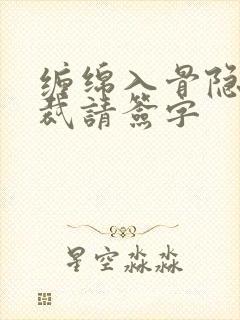 缠绵入骨隐
裁請簽字
星空淼淼